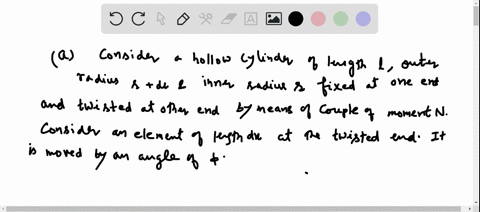 (a) Consider a hollow cylinder of length l, outer
radius r + dr & inner radius r fixed at one end
and twisted at other end by means of couple of moment N.
Consider an element of length dx at the twisted end. It
is moved by an angle of φ.